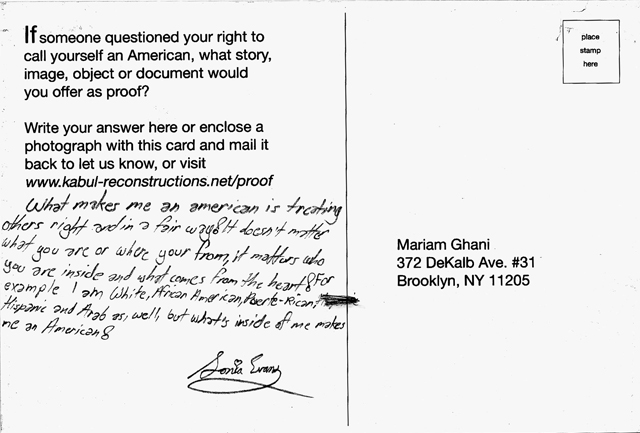 If someone questioned your right to
call yourself an American, what story,
image, object or document would
you offer as proof?
Write your answer here or enclose a
photograph with this card and mail it
back to let us know, or visit
www.kabul-reconstructions.net/proof
What makes me an american is treating
others right and in a fair way. It doesn't matter
what you are or where your from, it matters who
you are inside and what comes from the heart. For
example I am White, African American, Puerto-Rican,
Hispanic and Arab as, well, but what's inside of me makes
me an American.
Sonia Evans
place
stamp
here
Mariam Ghani
372 DeKalb Ave. #31
Brooklyn, NY 11205